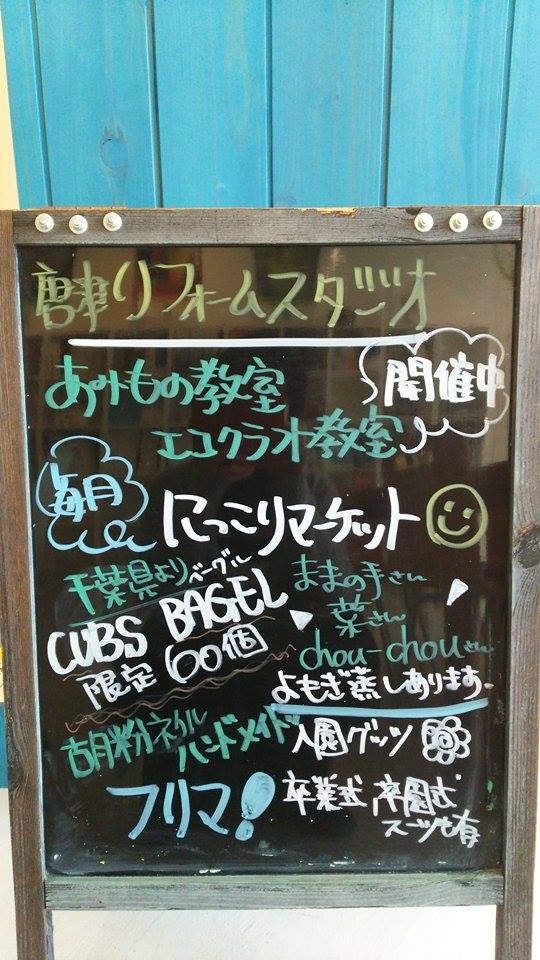 唐津リフォームスタジオ
開催中
あみもの教室
エコクラフト教室
毎月
にっこりマーケット
千葉県より ベーグル
CUBS BAGEL
限定 60個
ままの手さん
葉さん
chou-chouさん
よもぎ蒸しあります
胡粉ネイル
ハンドメイド
入園グッツ
フリマ!
卒業式 卒園式
スーツも有